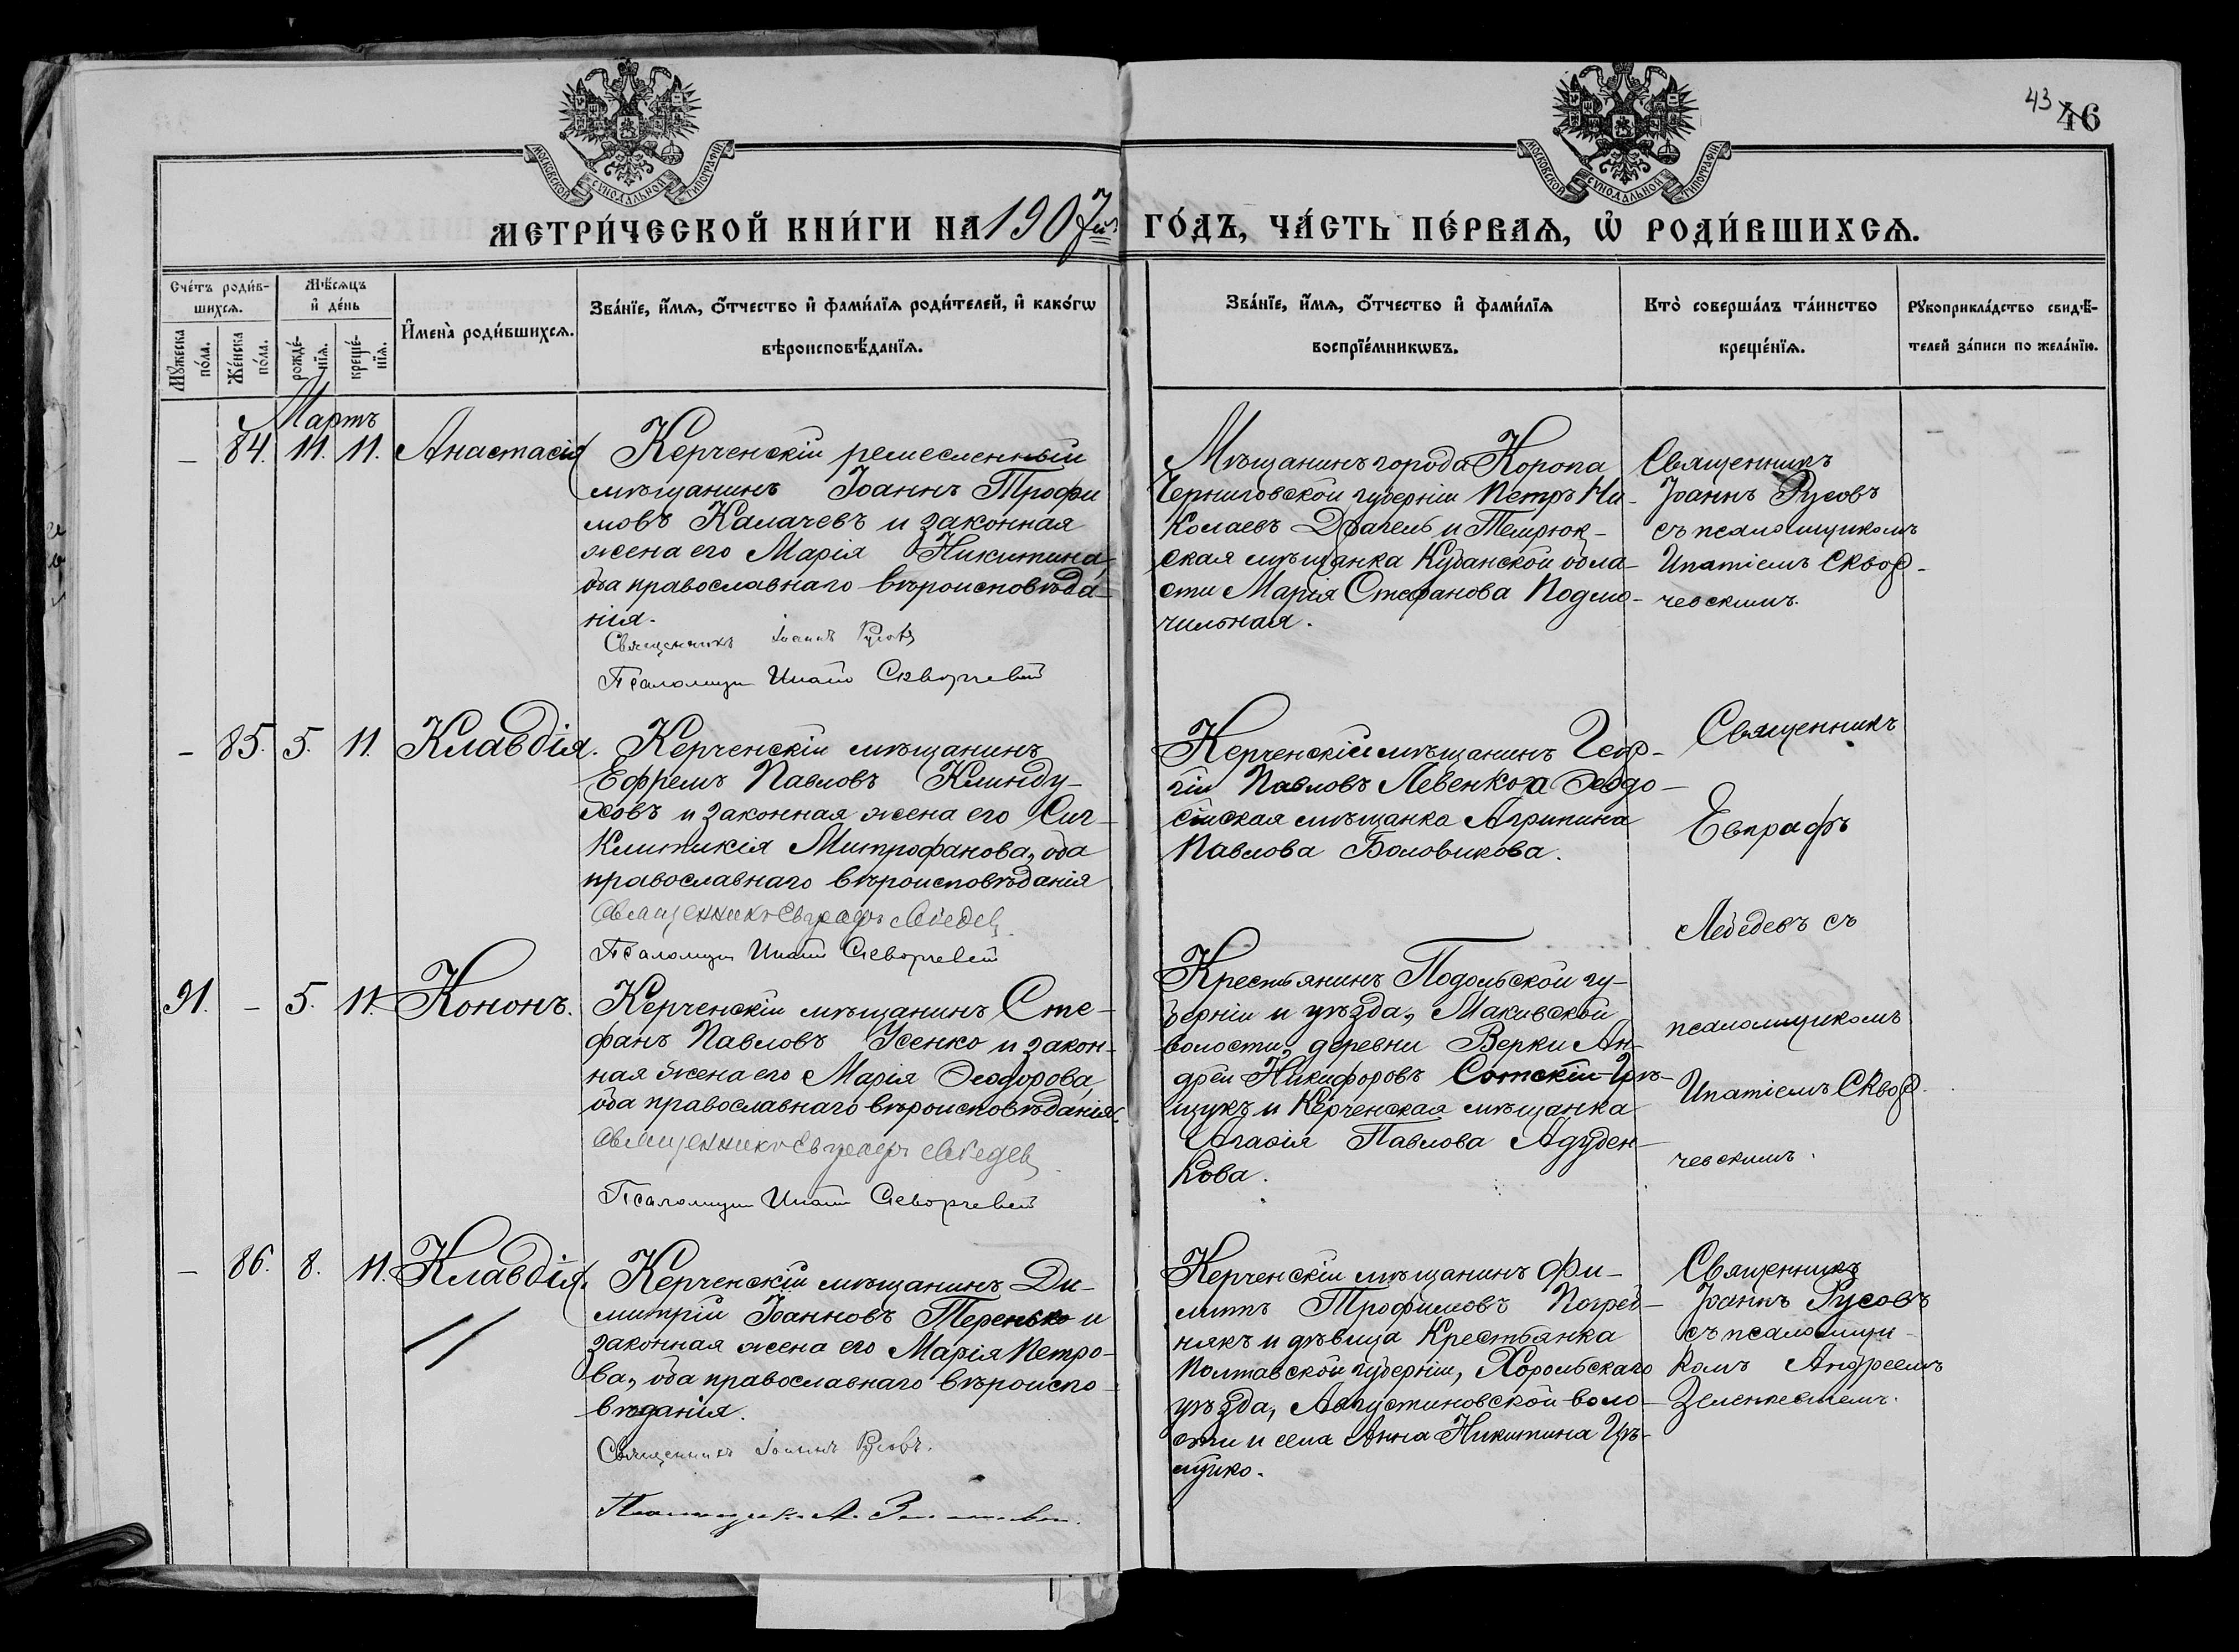 43
46
МОСКОВСКОЙ СѴНОДАЛЬНОЙ ТИПОГРАФІИ
МОСКОВСКОЙ СѴНОДАЛЬНОЙ ТИПОГРАФІИ
МЕТРИ́ЧЕСКОЙ КНИ́ГИ НА 1907й ГО́ДЪ, ЧА́СТЬ ПЕ́РВАѦ, Ѡ҆ РОДИ́ВШИХСѦ.
Сче́тъ роди́в-
шихсѧ.
Мꙋ́жеска по́ла.
Же́нска по́ла.
Мѣ́сѧцъ
и҆ де́нь
рожде́-
нїѧ.
креще́-
нїѧ.
И҆мена̀ роди́вшихсѧ.
Зва́нїе, и҆́мѧ, ѻ҆́тчество и҆ фами́лїѧ роди́телей, и҆ како́гѡ
вѣроисповѣ́данїѧ.
Зва́нїе, и҆́мѧ, ѻ҆́тчество и҆ фами́лїѧ
воспрїе́мникѡвъ.
Кто̀ соверша́лъ та́инство
креще́нїѧ.
Рꙋкоприкла́дство свидѣ́-
телей за́писи по жела́нїю.
Мартъ
— 84. 11. 11. Анастасія
Керченскій ремесленный
мѣщанинъ Іоаннъ Трофи
мовъ Калачевъ и законная
жена его Марія Никитина,
оба православнаго вѣроисповѣда-
нія.
Священникъ Іоаннъ Русовъ
Псаломщ Ипатій Скворчевскій
Мѣщанинъ города Коропа
Черниговской губерніи Петръ Ни-
колаевъ Драгель и Темрюк-
ская мѣщанка Кубанской обла-
сти Марія Стефанова Подмо-
чильная.
Священникъ
Іоаннъ Русовъ
съ псаломщикомъ
Ипатіемъ Сквор-
чевскимъ.
— 85. 5. 11. Клавдія.
Керченскій мѣщанинъ
Ефремъ Павловъ Клинду-
ховъ и законная жена его Син-
клитикія Митрофанова, оба
православнаго вѣроисповѣданія
Священникъ Евграфъ Лебедевъ
Псаломщ Ипатій Скворчевскій
Керченскій мѣщанинъ Геор-
гій Павловъ Левенко и Ѳеодо-
сійская мѣщанка Агрипина
Павлова Боловикова.
Священникъ
Евграфъ
Лебедевъ съ
псаломщикомъ
Ипатіемъ Сквор-
чевскимъ.
91. — 5. 11. Кононъ.
Керченскій мѣщанинъ Сте-
фанъ Павловъ Усенко и закон-
ная жена его Марія Ѳеодорова,
оба православнаго вѣроисповѣданія.
Священникъ Евграфъ Лебедевъ
Псаломщ Ипатій Скворчевскій
Крестьянинъ Подольской гу-
берніи и уѣзда, Макивской
волости, деревни Верки Ан-
дрей Никифоровъ Сотскій-Грѣ-
щукъ и Керченская мѣщанка
Агафія Павлова Адуден-
кова.
— 86. 8. 11. Клавдія.
Керченскій мѣщанинъ Ди-
митрій Іоанновъ Теренько и
законная жена его Марія Петро-
ва, оба православнаго вѣроиспо-
вѣданія.
Священникъ Іоаннъ Русовъ.
Керченскій мѣщанинъ Фи-
липъ Трофимовъ Погреб-
някъ и дѣвица крестьянка
Полтавской губерніи, Хорольскаго
уѣзда, Августиновской воло-
сти и села Анна Никитина Грѣ-
щико.
Священникъ
Іоаннъ Русовъ
съ псаломщи-
комъ Андреемъ
Зеленкевичемъ.